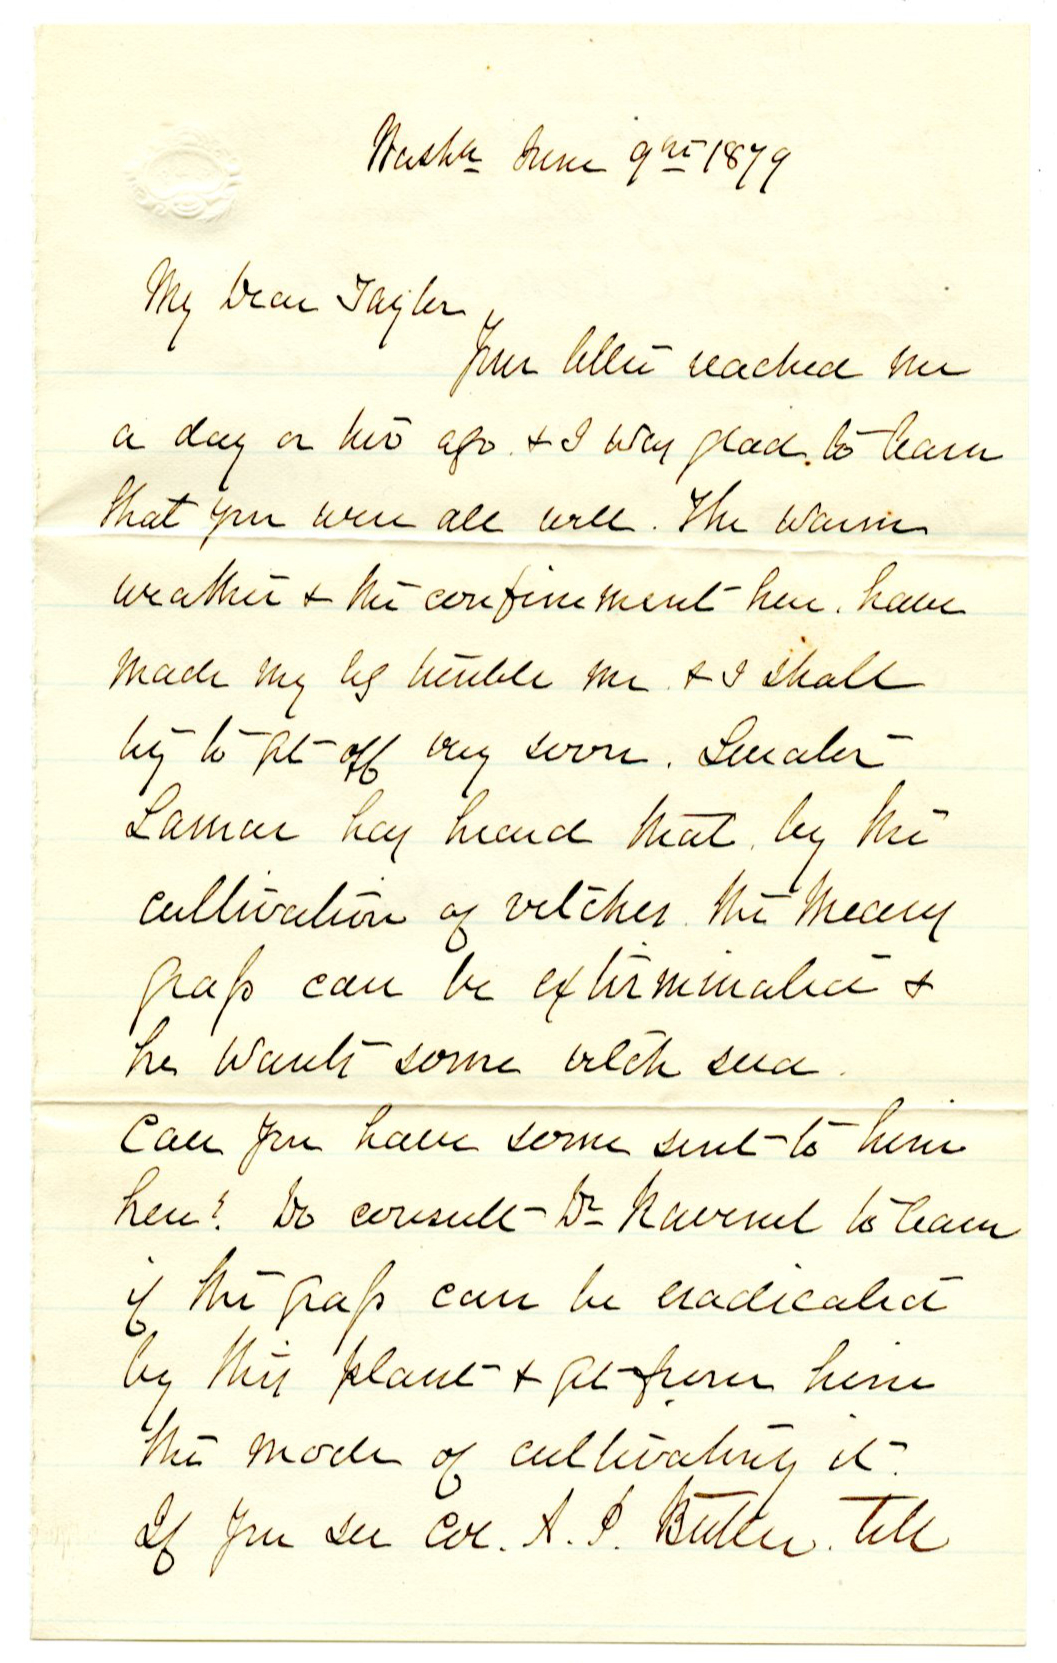 Washn June 9th 1879
My Dear Taylor,
Your letter reached me
a day or two ago. & I was glad to learn
that you were all well. The warm
weather & the confinement here, have
made my leg trouble me & I shall
try to get off very soon. Senator
Lamar has heard that by the
cultivation of vetches the
grass can be exterminated &
he wants some vetch seed.
Can you have some sent to him
here? Do consult Dr Ravenel to learn
if the grass can be eradicated
by this plant & get from him
the mode of cultivating it.
If you see Col. A. P. Butler. tell